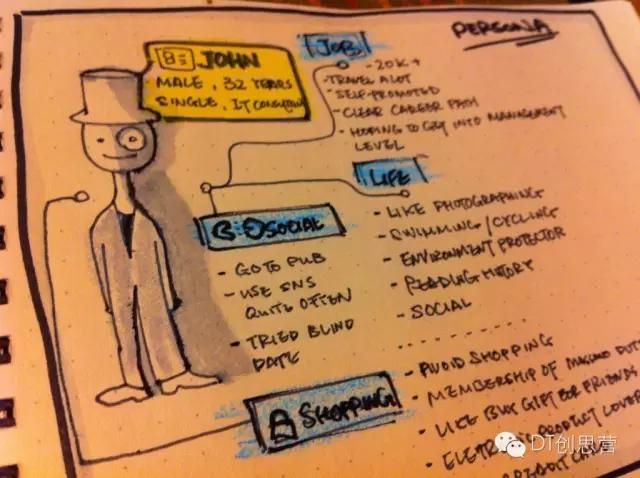 PERSONA
JOHN
MALE, 32 YEARS
SINGLE, IT CONSULTANT
JOB
- 20K+
- TRAVEL ALOT
- SELF-PROMOTED
- CLEAR CAREER PATH
- HOPING TO GET INTO MANAGEMENT
LEVEL
LIFE
- LIKE PHOTOGRAPHING
- SWIMMING/CYCLING
- ENVIRONMENT PROTECTOR
- READING HISTORY
- SOCIAL
SOCIAL
- GO TO PUB
- USE SNS
QUITE OFTEN
- TRIED BLIND
DATE
SHOPPING
- AVOID SHOPPING
- MEMBERSHIP OF
- LIKE BUY GIFT FOR FRIENDS
- PRODUCT LOVER
DT创思营